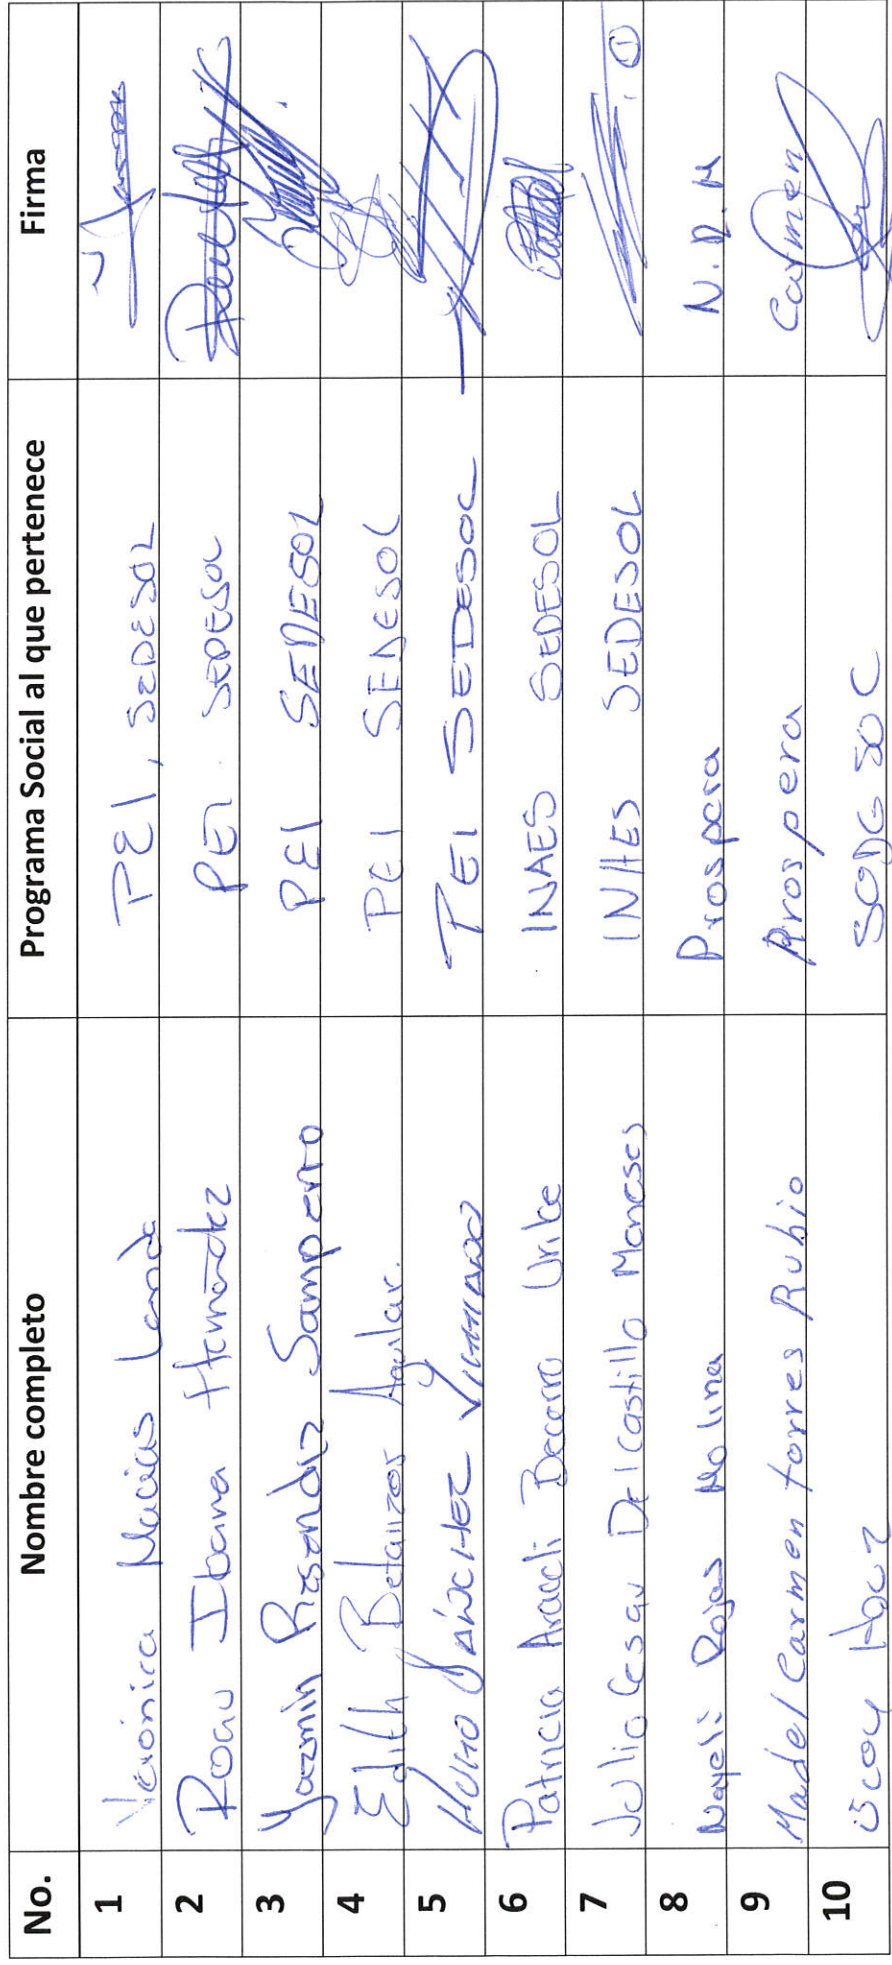 No. Nombre completo Programa Social al que pertenece Firma
1 Verónica Macias Landa PEI, SEDESOL
2 Rocio Ibarra Hernández PEI SEDESOL
3 Yazmin Resendiz Samperio PEI SEDESOL
4 Edith Betanzos Aguilar. PEI SEDESOL
5 HUGO SÁNCHEZ PEI SEDESOL
6 Patricia Araceli Becerra Uribe INAES SEDESOL
7 Julio Cesar Del Castillo Meneses INAES SEDESOL
8 Nayeli Rojas Molina Prospera N.R.M
9 Ma del Carmen torres Rubio Prospera Carmen
10